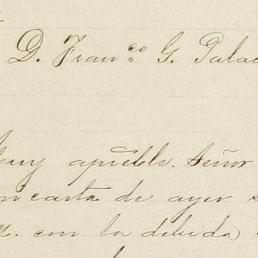 D. Fran.co G. Palac
muy apreble. Señor
carta de ayer
con la debida